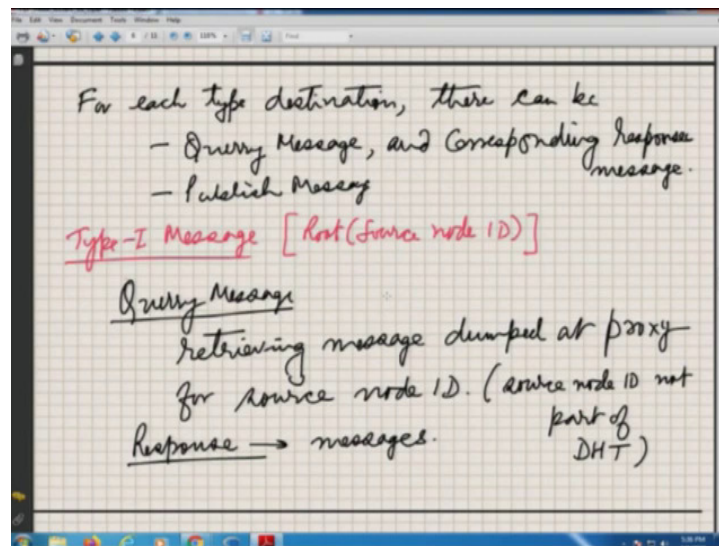 File Edit View Document Tools Window Help
6 / 11 110% Find
For each type destination, there can be
- Querry Message, and Corresponding Response
message.
- Publish Message
Type-I Message [Root (Source node ID)]
Querry Message
retrieving message dumped at proxy
for source node ID. (source node ID not
part of
DHT)
Response → messages.
5:36 PM